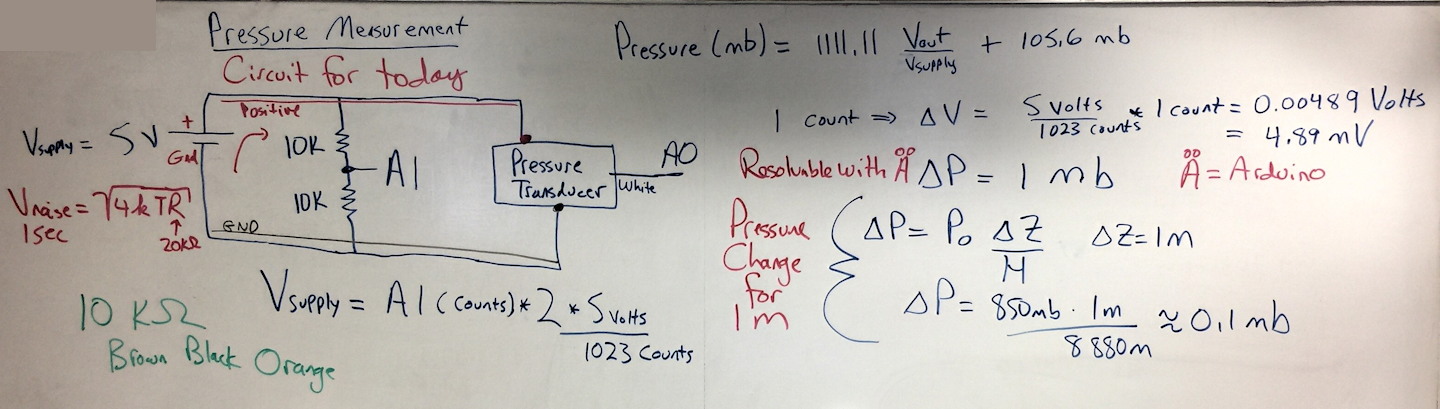 Pressure Measurement
Circuit for today
Positive
+
Vsupply = 5V
Gnd
10K
A1
10K
GND
Pressure
Transducer
White
A0
Vnoise = √4kTR
1sec
↑
20KΩ
Vsupply = A1 (counts) * 2 * 5 Volts
1023 Counts
10 KΩ
Brown Black Orange
Pressure (mb) = 1111.11 Vout/Vsupply + 105.6 mb
1 count ⇒ ΔV = 5 Volts/1023 counts * 1 count = 0.00489 Volts
= 4.89 mV
Resolvable with Å ΔP = 1 mb
Å = Arduino
Pressure
Change
for
1m
ΔP = P₀ ΔZ/H ΔZ = 1m
ΔP = 850mb · 1m/8880m ≈ 0.1 mb